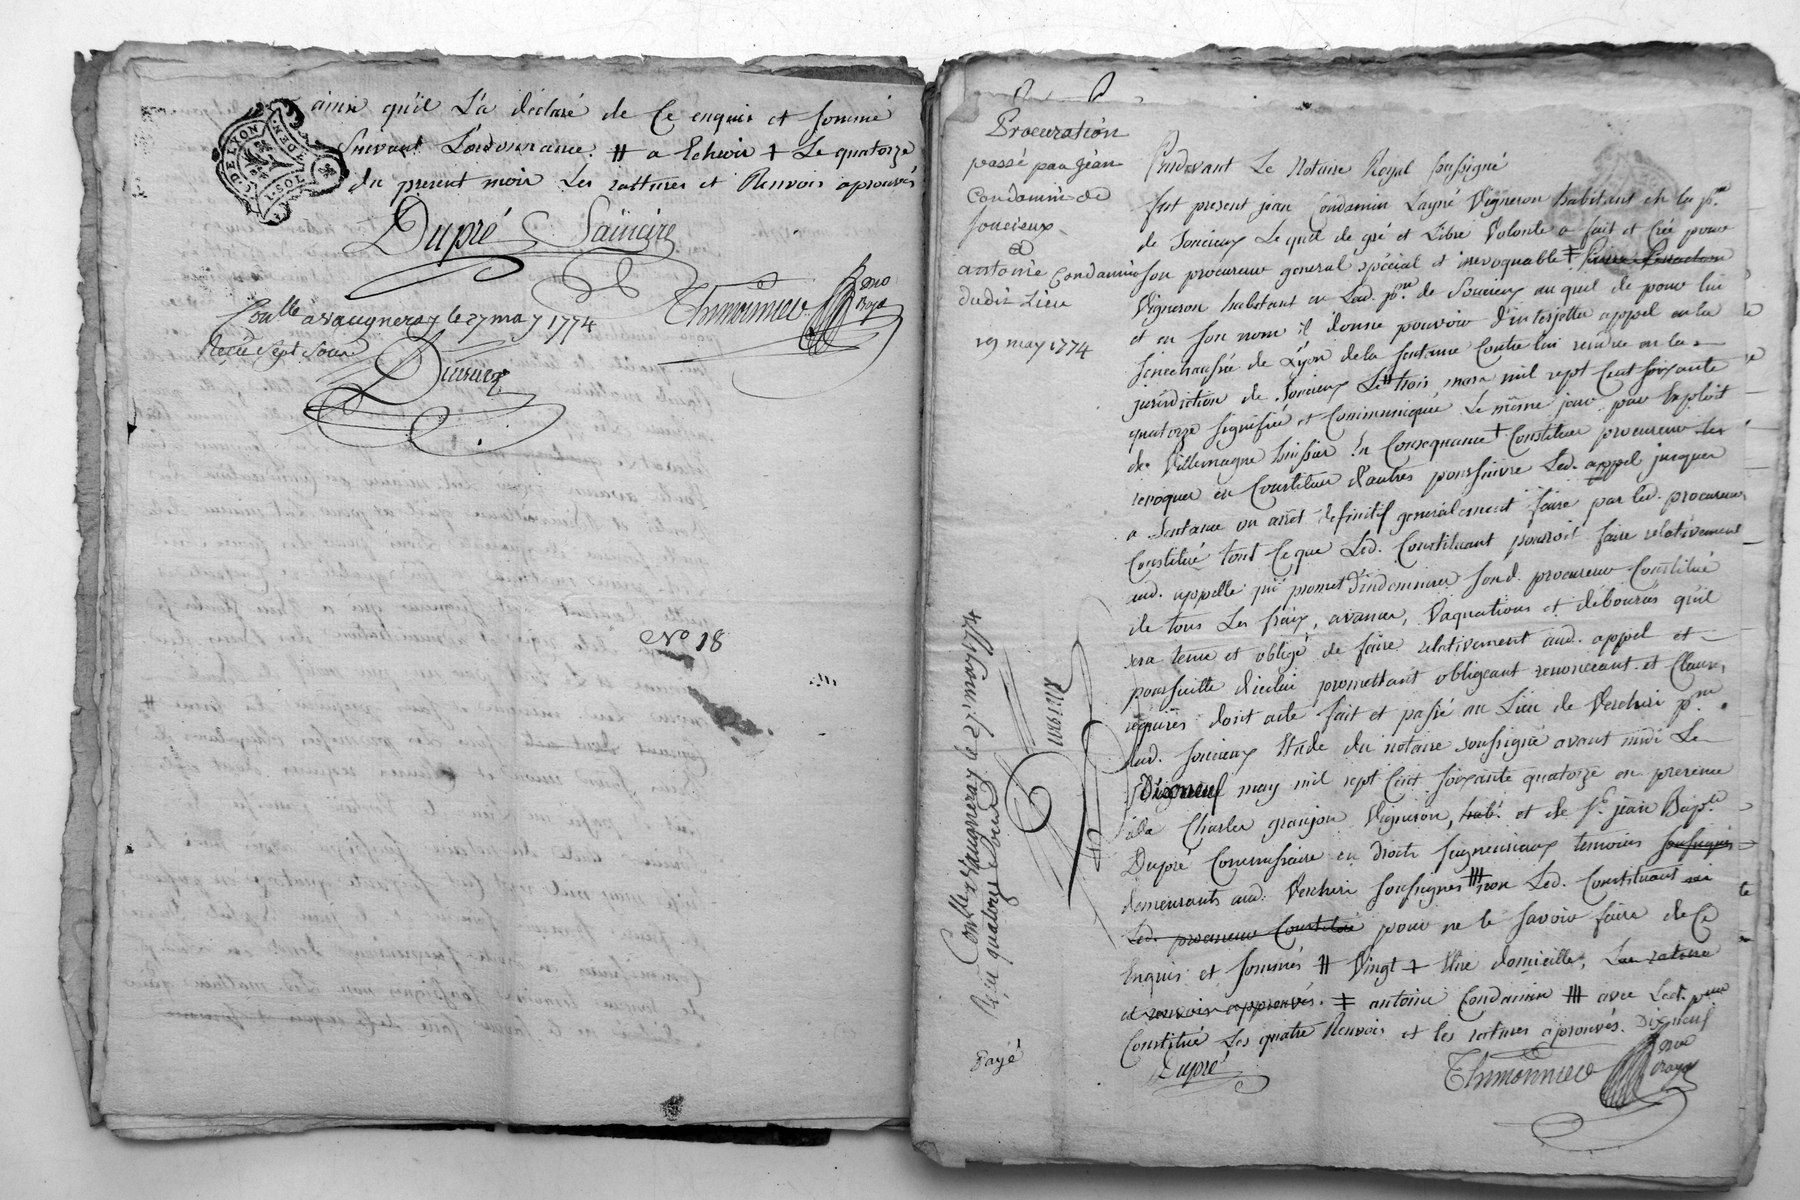 ainsi qu'il L'a déclaré de Ce enquis et sommé
Suivant L'ordonnance. # a Echevir + Le quatorze
du present mois Les rattures et Renvois aprouvés
G. DE LYON
DEN.
Dupré Saincire
Thimonnier
no.re Royal
Con.lle a vaugneray le 27 may 1774
Recu Sept Sous
N.o 18
Procuration
passé par Jean
Condamin de
Soucieux
a
antoine Condamin
dudit Lieu
19 may 1774
Pardevant Le Notaire Royal soussigné
fut present jean Condamin Layné Vigneron habitant en la p.sse
de Soucieux Lequel de gré et Libre Volonté a fait et Créé pour
son procureur general special et irrevoquable ‡
Vigneron habitant en Lad. p.sse de Soucieux auquel de pour lui
et en son nom il donne pouvoir d'interjetter appel en la
senechaussée de Lyon de la sentance Contre lui rendue en la
jurisdiction de Soucieux Le # trois mars mil sept Cent soixante
quatorze signifiée et Communiquée Le même jour par Exploit
de Villemagne huissier En Consequance + Constituer procureur les
revoquer en Constituer d'autres poursuivre Led. appel jusques
a Sentance ou arret definitif generalement faire par led. procureur
Constitué tout Ce que Led. Constituant pouroit faire relativement
aud. appelle qui promet d'indemniser sond. procureur Constitué
de tous Les fraix, avances, Vaquations et deboursés qu'il
sera tenu et obligé de faire relativement aud. appel et
poursuitte d'icelui promettant obligeant renonceant et Clauses
requises dont acte fait et passé au Lieu de Verchéri p.sse
dud. Soucieux Etude du notaire soussigné avant midi Le
Dixneuf may mil sept Cent soixante quatorze en presence
de Charles granjon Vigneron, hab.t et de S.r jean Bap.te
Dupré Commissaire en droits seigneuriaux temoins soussignés
demeurants aud. Verchéri soussignés ⧻ non Led. Constituant ni
Led. procureur Constitué pour ne le savoir faire de Ce
Enquis et sommés # Vingt + Elire domicille, Les rature
et renvois approuvés. ‡ antoine Condamin ⧻ avec Led. procureur
Constitué Les quatre Renvois et les ratures aprouvés. Dixneuf
Dupré
Thimonnier
no.re Royal
Con.lle a Vaugneray le 27 may 1774
Recu quatorze Sous
Payé